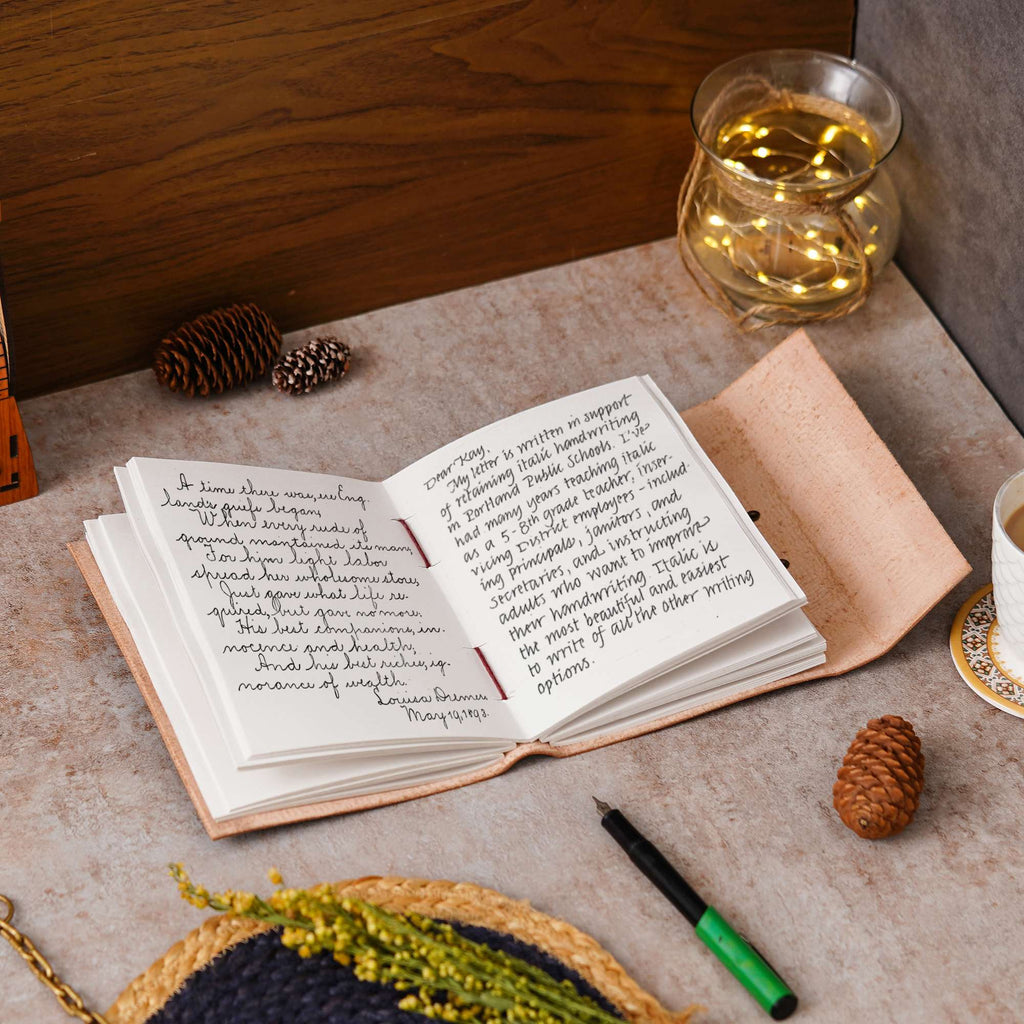 A time there was, ere Eng.
land's griefs began,
When every rude of
ground maintained its man;
For him light labor
spread her wholesome store,
Just gave what life re
quired, but gave no more.
His best companions, in.
nocence and health;
And his best riches, ig.
norance of wealth.
Louisa
May 19, 1893.
Dear Kay,
My letter is written in support
of retaining italic handwriting
in Portland Public Schools. I've
had many years teaching italic
as a 5-8th grade teacher, inser-
vicing District employees - includ-
ing principals, janitors, and
secretaries, and instructing
adults who want to improve
their handwriting. Italic is
the most beautiful and easiest
to write of all the other writing
options.